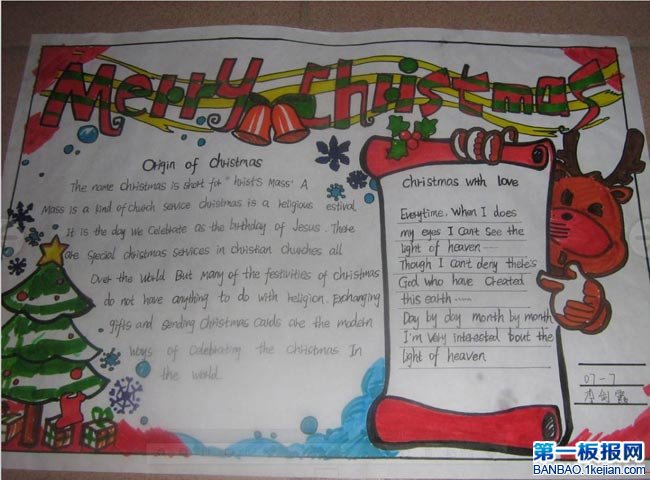 Merry Christmas
Origin of christmas
The name christmas is short for "hrist's Mass" A
Mass is a kind of church service christmas is a religious estival
It is the day we celebrate as the birthday of Jesus. There
are special christmas services in christian churches all
Over the world But many of the festivities of christmas
do not have anything to do with religion. Exchanging
gifts and sending christmas cards are the modern
ways of celebrating the christmas In
the world
Christmas with love
Everytime, When I does
my eyes I can't see the
light of heaven ----
Though I can't deny there's
God who have created
this earth ----
Day by day month by month
I'm very interested 'bout the
light of heaven
07-7
李剑露
第一板报网
BANBAO.1kejian.com